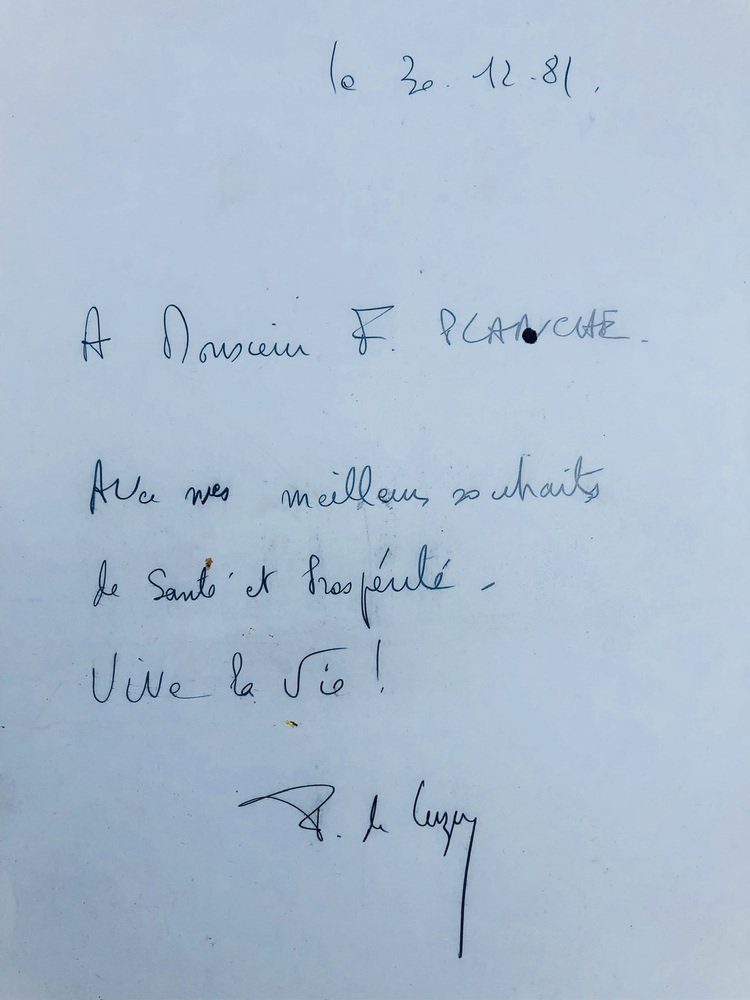 le 30.12.81.
A Monsieur F. PLANCHE.
Avec mes meilleurs souhaits
de Santé et Prospérité -
Vive la Vie !
de